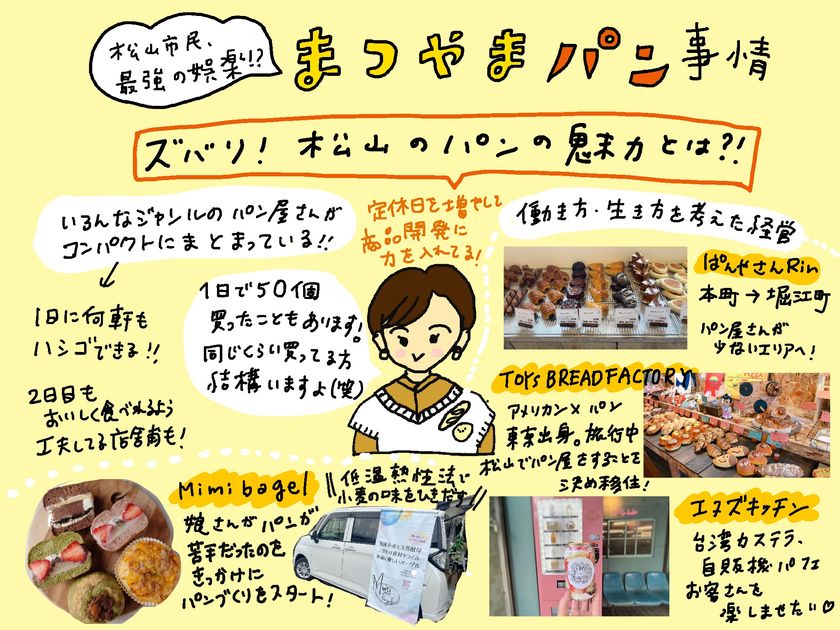 松山市民、
最強の娯楽!?
まつやまパン事情
ズバリ! 松山のパンの魅力とは?!
いろんなジャンルのパン屋さんが
コンパクトにまとまっている!!
1日に何軒も
ハシゴできる!!
2日目も
おいしく食べれるよう
工夫してる店舗も!
定休日を増やして
商品開発に
力を入れてる!
1日で50個
買ったこともあります!
同じくらい買ってる方
結構いますよ(笑)
働き方・生き方を考えた経営
ぱんやさんRin
本町→堀江町
パン屋さんが
少ないエリアへ!
TOI's BREADFACTORY
アメリカン×パン
東京出身。旅行中
松山でパン屋をすることを
決め移住!
Mimi bagel
娘さんがパンが
苦手だったのを
きっかけに
パンづくりをスタート!
低温熱性法で
小麦の味をひきだす
エヌズキッチン
台湾カステラ、
自販機パフェ
お客さんを
楽しませたい♡